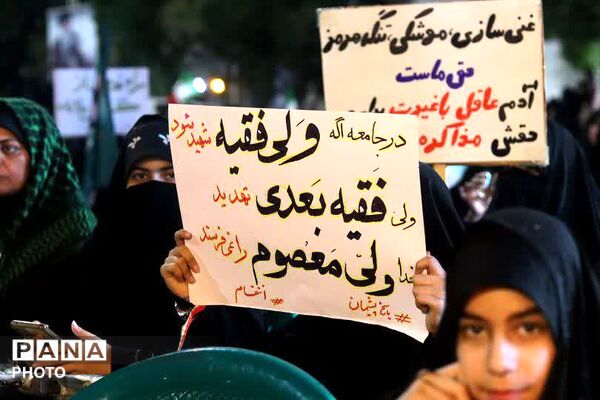 غنی سازی، موشکی، تنگه هرمز
حق ماست
آدم عاقل باغیرت
حقش مذاکره
در جامعه اگه ولی فقیه شهید شود
ولی فقیه بعدی تهدید
خدا ولیّ معصوم را نمی فرستد
#پاسخ پشیمان
#انتقام
PANA
PHOTO